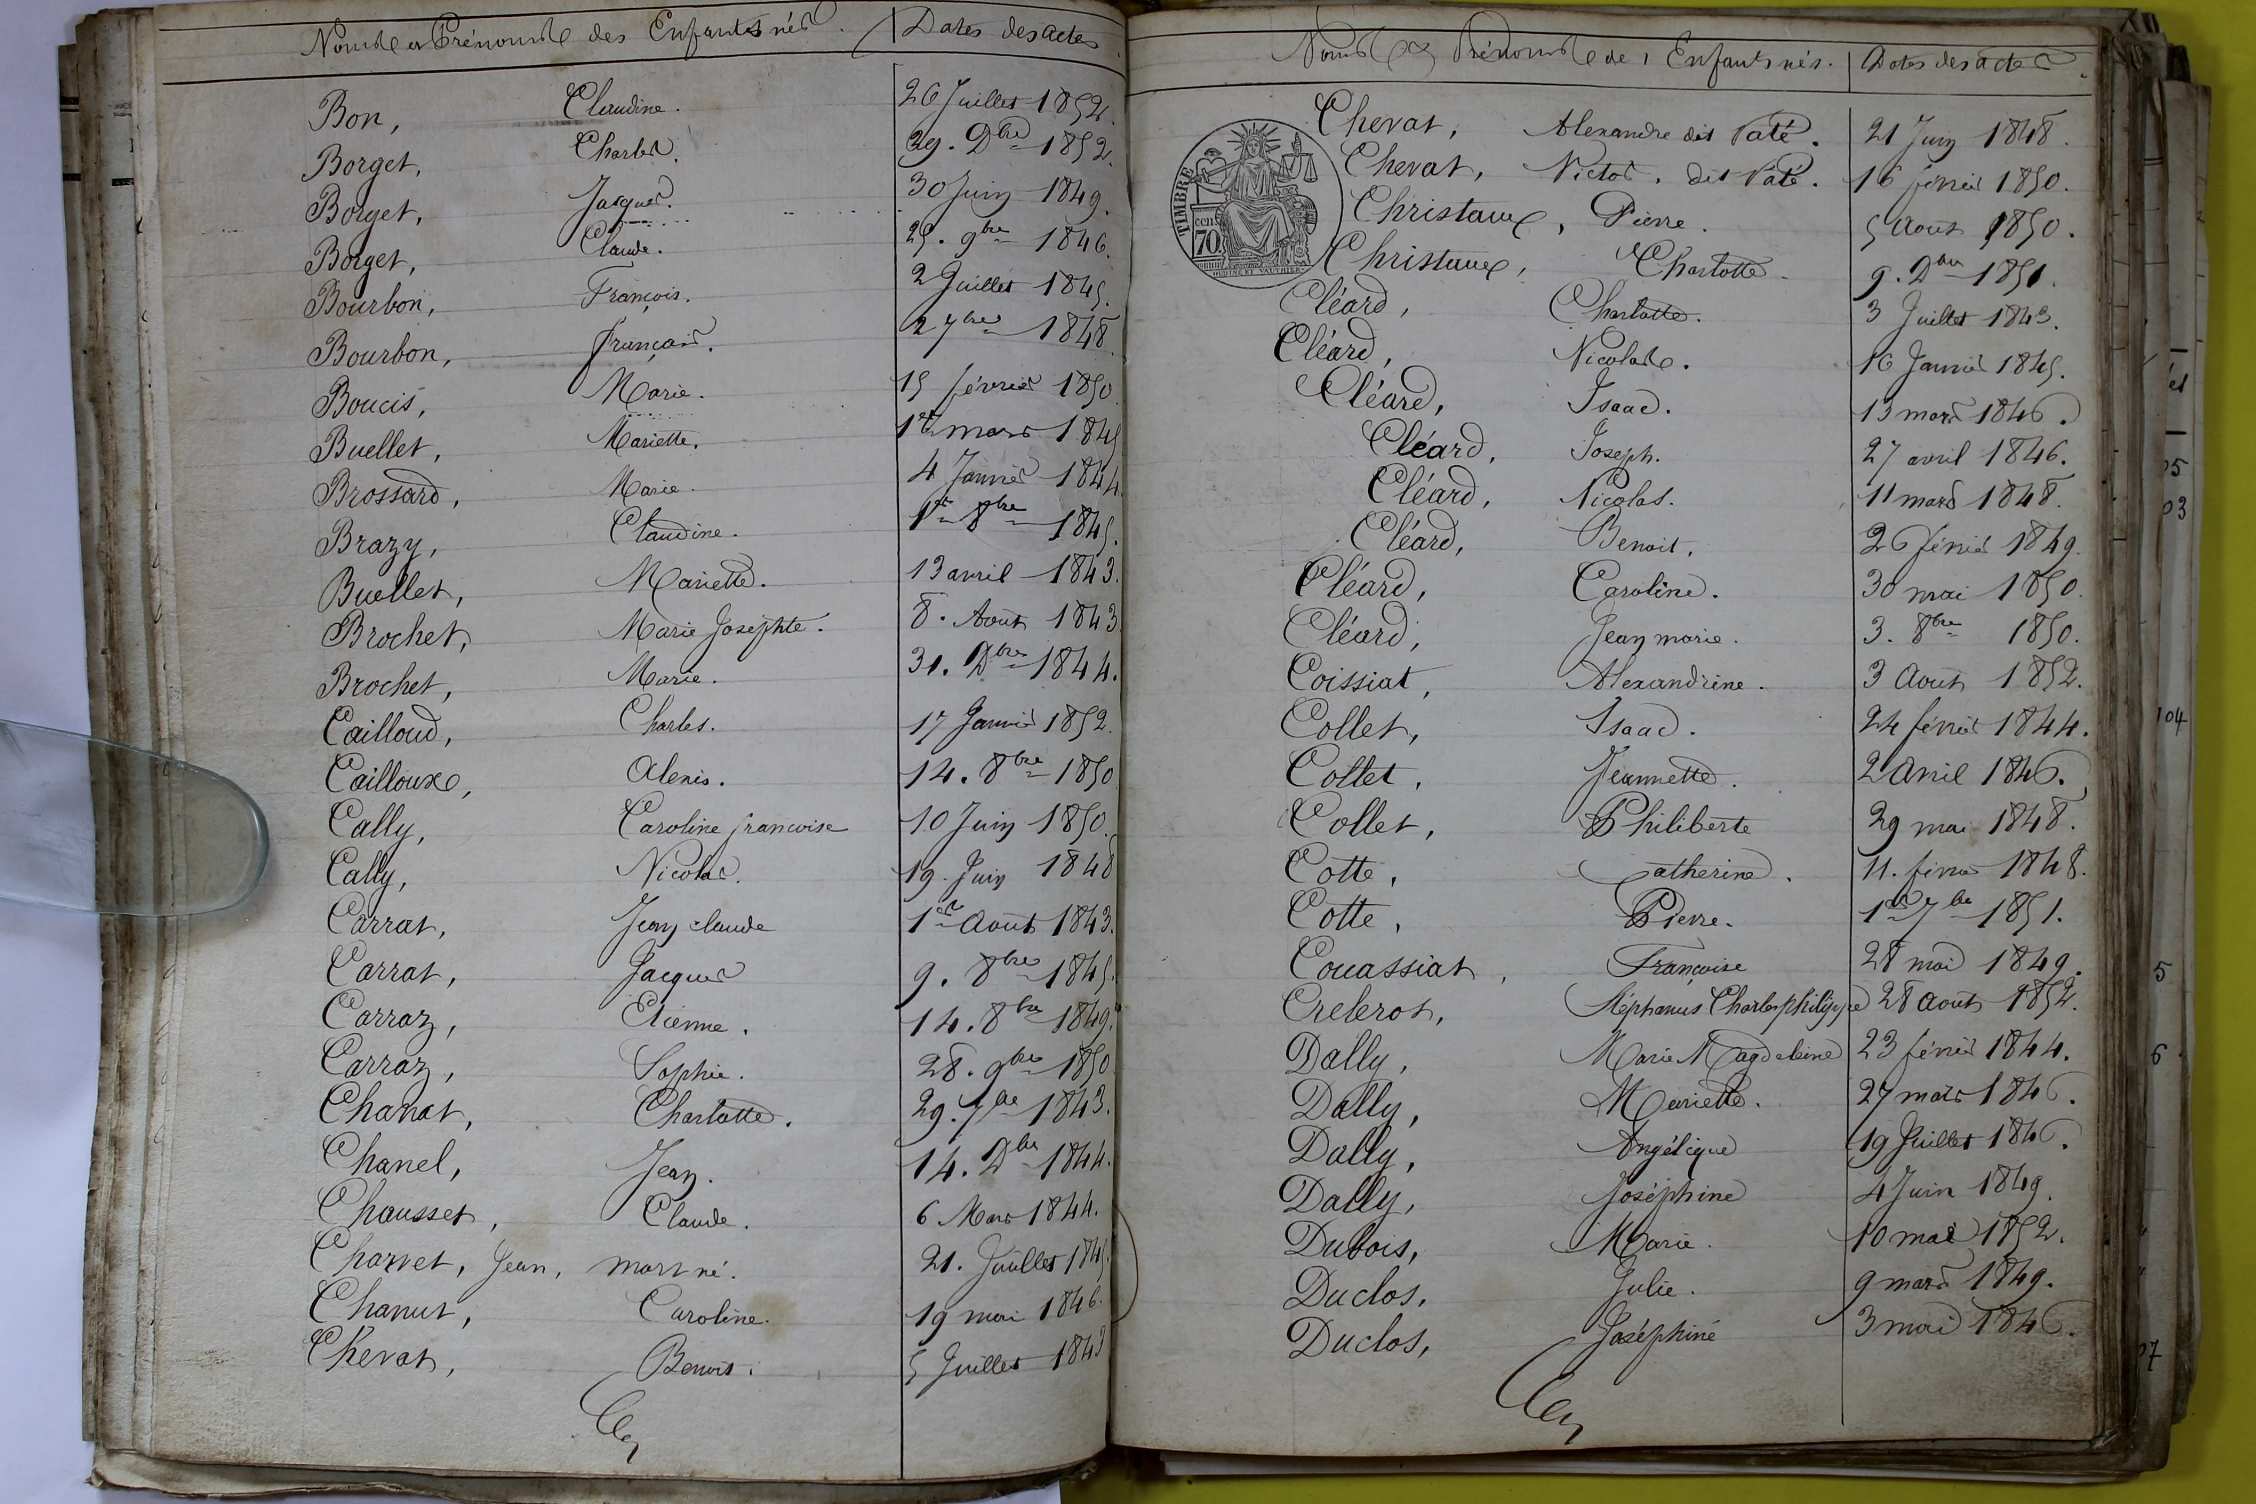 Noms et Prénoms des Enfants nés. Dates des actes
Bon, Claudine. 26 Juillet 1852.
Borget, Charles. 29. Dbre 1852.
Borget, Jacques. 30 Juin 1849.
Borget, Claude. 25. 9bre 1846.
Bourbon, François. 2 Juillet 1845.
Bourbon, françois. 2 7bre 1848
Boucis, Marie. 15 février 1850
Buellet, Mariette. 1er mars 1845
Brossard, Marie. 4 Janvier 1844.
Brazy, Claudine. 1er 8bre 1845.
Buellet, Mariette. 13 avril 1843.
Brochet, Marie Josephte. 8. Août 1843
Brochet, Marie. 31. Dbre 1844.
Cailloud, Charles. 17 Janvier 1852.
Cailloux, Alexis. 14. 8bre 1850
Cally, Caroline francoise 10 Juin 1850.
Cally, Nicolas. 19. Juin 1848
Carrat, Jean claude 1er Août 1843.
Carrat, Jacques 9. 8bre 1845.
Carraz, Etienne. 14. 8bre 1849.
Carraz, Sophie. 28. 9bre 1850
Chanat, Charlotte. 29. 7bre 1843.
Chanel, Jean. 14. Dbre 1844.
Chausset, Claude. 6 Mars 1844.
Charvet, Jean, mort né. 21. Juillet 1845.
Chanut, Caroline. 19 mai 1846.
Chevat, Benoit. 5 Juillet 1843
Noms et Prénoms des Enfants nés. Dates des actes.
Chevat, Alexandre dit Paté. 21 Juin 1848.
Chevat, Victor, dit Paté. 16 février 1850.
TIMBRE
cen
70
Christaux, Pierre. 5 Août 1850.
Christaux, Charlotte. 9. Dbre 1851.
Cléard, Charlotte. 3 Juillet 1843.
Cléard, Nicolas. 16 Janvier 1845.
Cléard, Isaac. 13 mars 1846.
Cléard, Joseph. 27 avril 1846.
Cléard, Nicolas. 11 mars 1848.
Cléard, Benoit. 26 février 1849.
Cléard, Caroline. 30 mai 1850.
Cléard, Jean marie. 3. 8bre 1850.
Coissiat, Alexandrine. 3 Août 1852.
Collet, Isaac. 24 février 1844.
Collet, Jeannette. 2 Avril 1846.
Collet, Philiberte 29 mai 1848.
Cotte, Catherine. 11. février 1848.
Cotte, Pierre. 1er 7bre 1851.
Couassiat, Françoise 28 mai 1849.
Crelerot, Stéphanus Charles philippe 28 août 1852.
Dally, Marie Magdeleine 23 février 1844.
Dally, Mariette. 27 mars 1846.
Dally, Angélique 19 Juillet 1846.
Dally, Joséphine 4 Juin 1849.
Dubois, Marie. 10 mai 1852.
Duclos, Julie. 9 mars 1849.
Duclos, Joséphine 3 mai 1846.